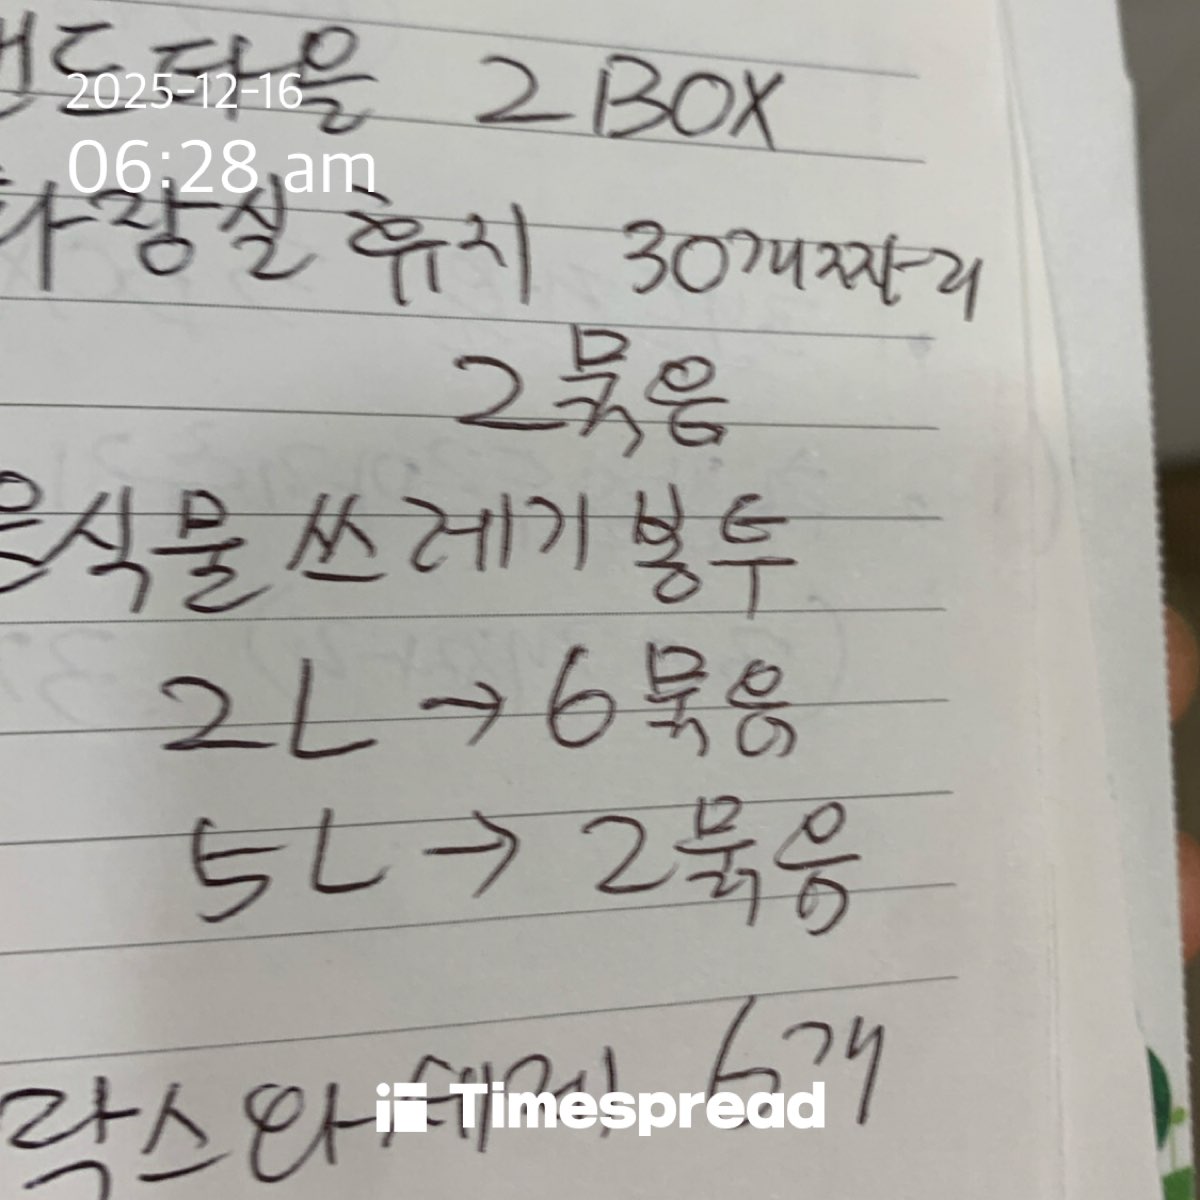 핸드타올 2BOX
2025-12-16
06:28 am
화장실 휴지 30개짜리
2묶음
음식물 쓰레기 봉투
2L → 6묶음
5L → 2묶음
락스와 6개
Timespread